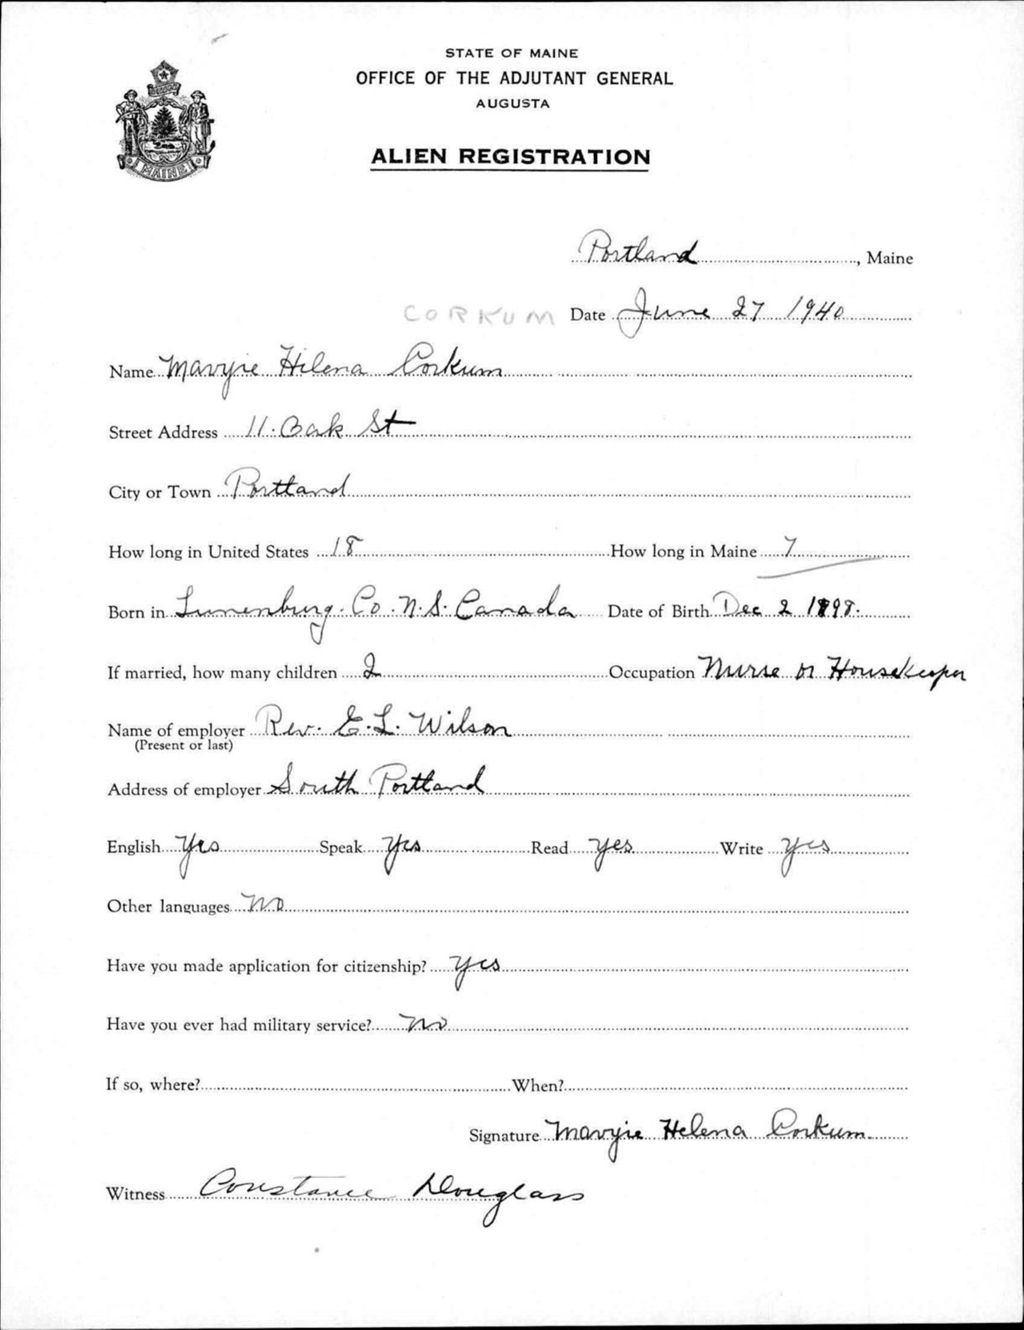 STATE OF MAINE
OFFICE OF THE ADJUTANT GENERAL
AUGUSTA
ALIEN REGISTRATION
MAINE
Portland, Maine
CORKUM Date June 27 1940
Name Maryie Hilena Corkum
Street Address 11. Oak St
City or Town Portland
How long in United States 18 How long in Maine 7
Born in Lunenburg. Co. N.S. Canada Date of Birth Dec 2 1898.
If married, how many children 2 Occupation Nurse or Housekeeper
Name of employer Rev. E.L. Wilson
(Present or last)
Address of employer South Portland
English Yes Speak Yes Read Yes Write Yes
Other languages No
Have you made application for citizenship? Yes
Have you ever had military service? No
If so, where? When?
Signature Maryie Helena Corkum
Witness Constance Douglass